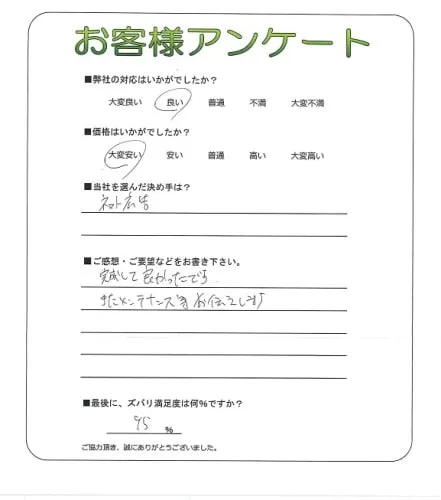 お客様アンケート
■弊社の対応はいかがでしたか？
大変良い 良い 普通 不満 大変不満
■価格はいかがでしたか？
大変安い 安い 普通 高い 大変高い
■当社を選んだ決め手は？
ネット広告
■ご感想・ご要望などをお書き下さい。
完成して良かったです
またメンテナンス等お伝えします
■最後に、ズバリ満足度は何％ですか？
95 ％
ご協力頂き、誠にありがとうございました。